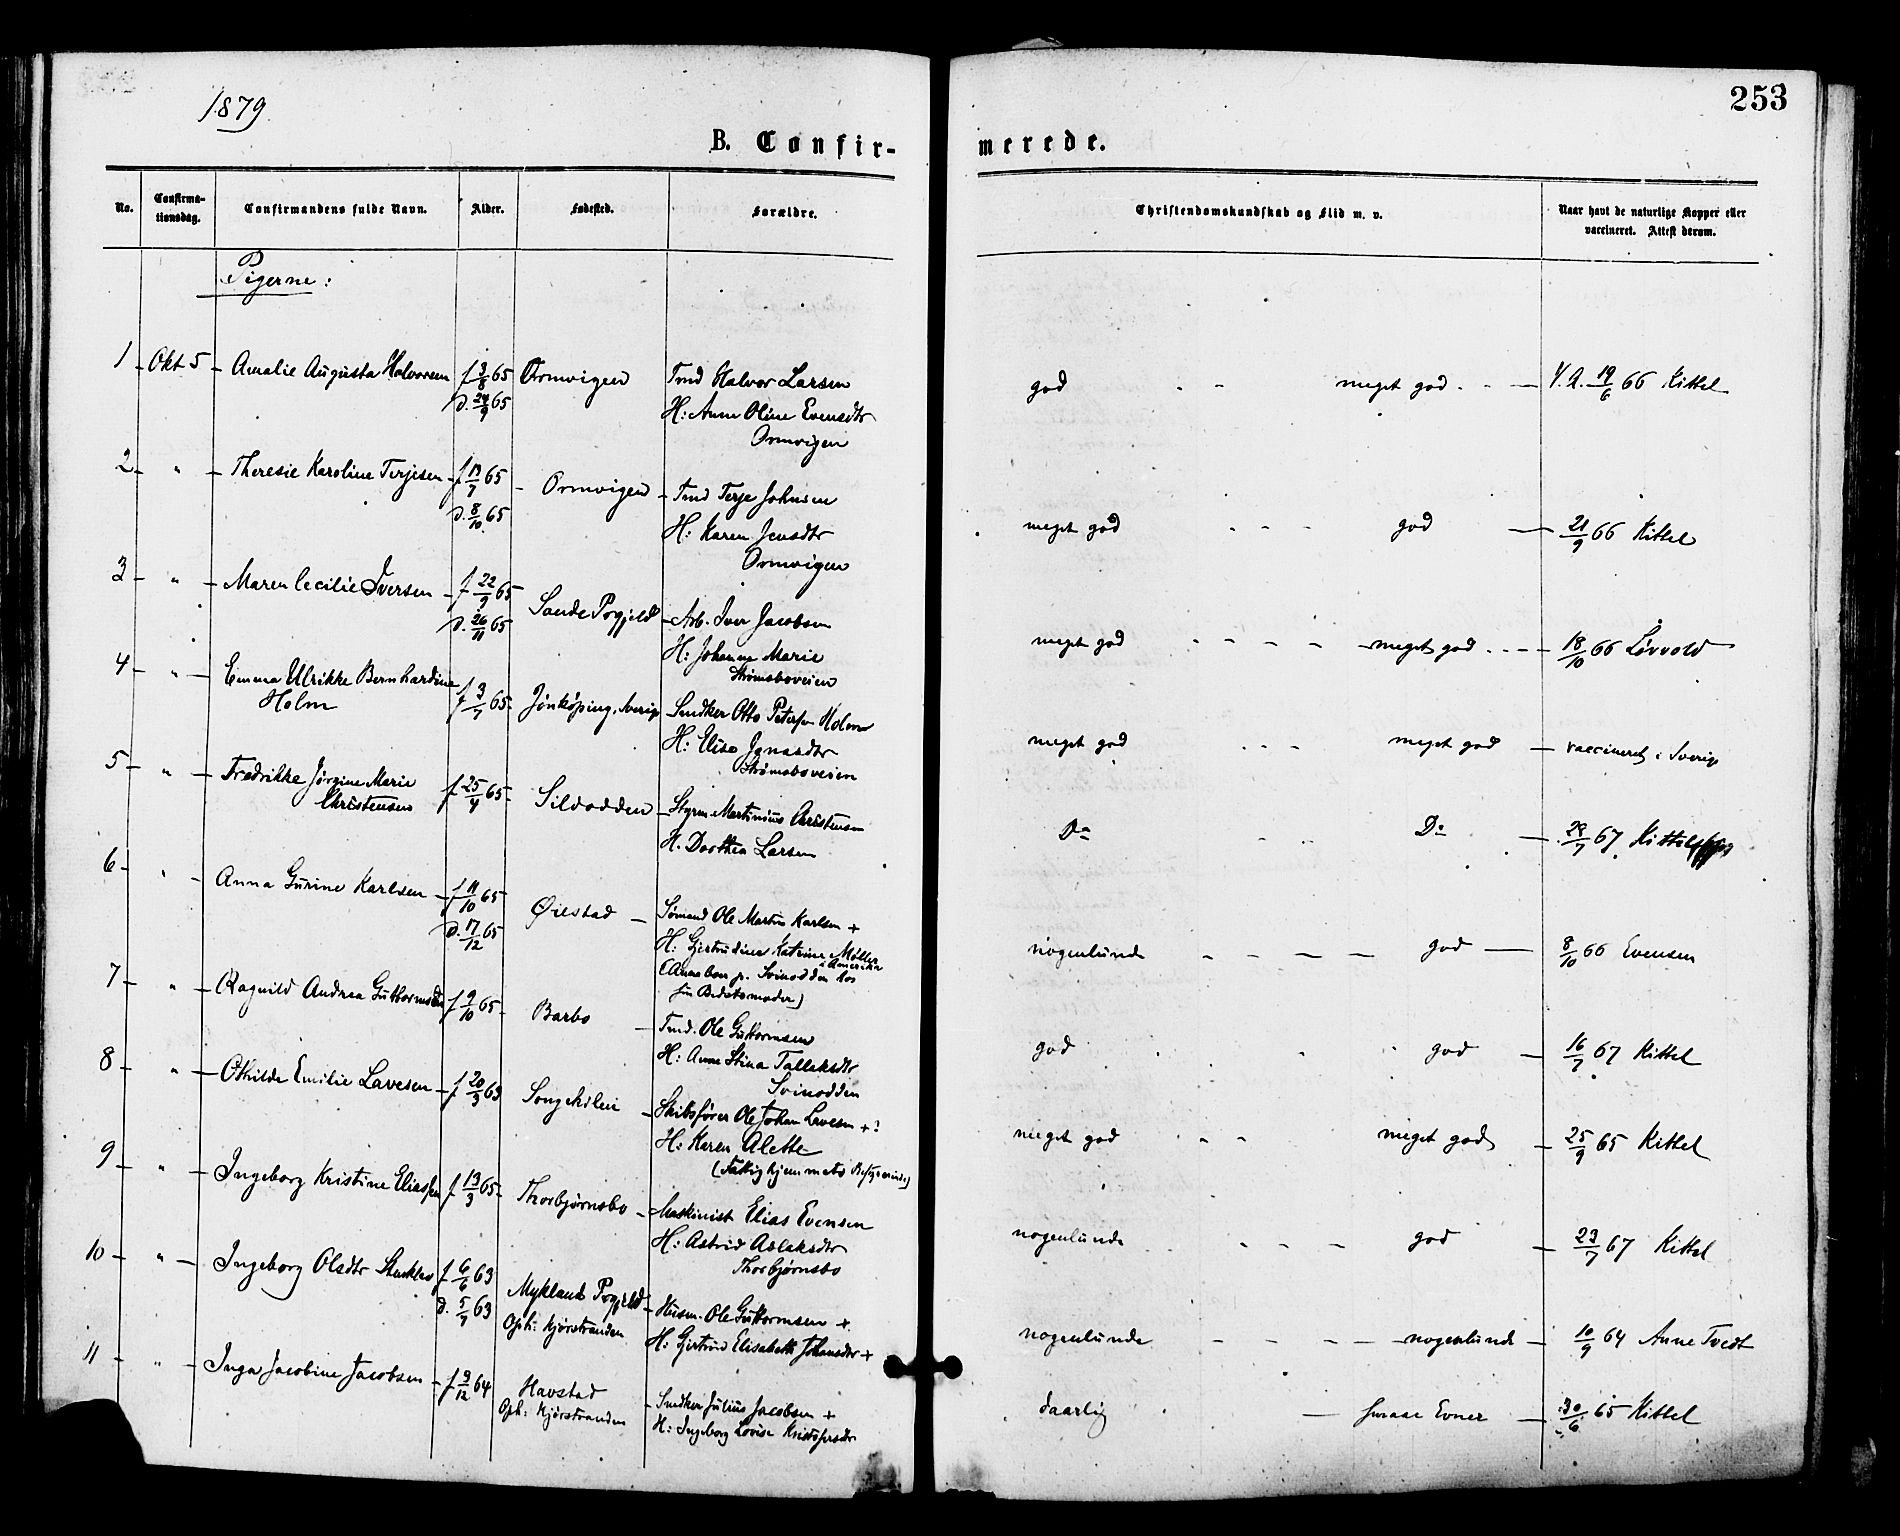 1879
253
B. Confir- merede.
No. Confirma-tionsdag. Confirmandens fulde Navn. Alder. Fødested. Forældre. Christendomskundskab og Flid m. v. Naar havt de naturlige Kopper eller vaccineret. Attest derom.
Pigerne:
1 Okt 5 Amalie Augusta Halvorsen f 3/8 65 Ormvigen Tmd Halvor Larsen god meget god 19/6 66 Kittel
d. 24/9 65 H: Anne Oline Evensdtr
Ormvigen
2 " Theresie Karoline Terjesen f 13/7 65 Ormvigen Tmd Terje Johnsen meget god god 21/9 66 Kittel
d. 8/10 65 H: Karen Jensdtr
Ormvigen
3 " Maren Cecilie Iversen f 22/9 65 Sande Prgjeld Arb. Iver Jacobsen meget god meget god 18/10 66 Løvold
d. 26/11 65 H: Johanne Marie
Strømsboveien
4 " Emma Ulrikke Bernhardine f 3/7 65 Jönköping, Sverig Snedker Otto Petersen Holm meget god meget god vaccineret i Sverig
Holm H: Elise Jonasdtr
Strømsboveien
5 " Fredrikke Jørgine Marie f 25/4 65 Sildodden Styrm. Martinius Christensen Do Do 29/7 67 Kittel
Christensen H. Dorthea Larsen
6 " Anna Gurine Karlsen f 11/10 65 Øiestad Sømand Ole Martin Karlsen + nogenlunde god 8/10 66 Evensen
d. 17/12 65 H: Gjertrudine Katrine Møller
i Amerika
(Anna bor p. Svinodden hos
sin Bedstemoder)
7 " Ragnild Andrea Guttormsen f 9/10 65 Barbo Tmd. Ole Guttormsen god god 16/7 67 Kittel
H: Anne Stina Tallaksdtr
Svinodden
8 " Othilde Emilie Lavesen f 20/3 63 Songekilen Skibsfører Ole Johan Lavesen +? meget god meget god 25/9 65 Kittel
H: Karen Alette
(Fattighjemmets Bestyrerinde)
9 " Ingeborg Kristine Eliassen f 13/3 65 Thorbjørnsbo Maskinist Elias Evensen nogenlunde god 23/7 67 Kittel
H: Astrid Aslaksdtr
Thorbjørnsbo
10 " Ingeborg Olsdtr f 6/6 63 Mykland Prgjeld Husm. Ole Guttormsen + nogenlunde nogenlunde 10/9 64 Anne Tvedt
d. 5/7 63 Oph: Kjørstranden H: Gjertrud Elisabeth Johansdtr +
11 " Inga Jacobine Jacobsen f 3/12 64 Havstad Snedker Julius Jacobsen + daarlig smaae Evner 30/6 65 Kittel
Oph: Kjørstranden H: Ingeborg Lovise Kristofersdtr